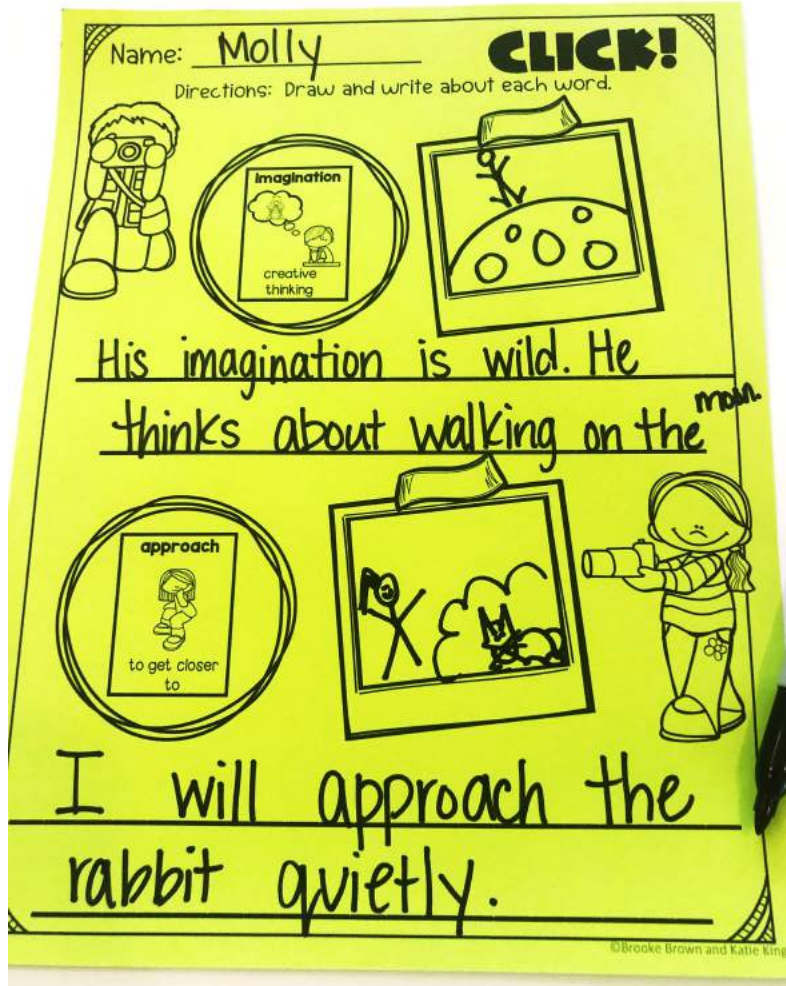 Name: Molly
CLICK!
Directions: Draw and write about each word.
imagination
creative
thinking
His imagination is wild. He
thinks about walking on the moon.
approach
to get closer
to
I will approach the
rabbit quietly.
©Brooke Brown and Katie King